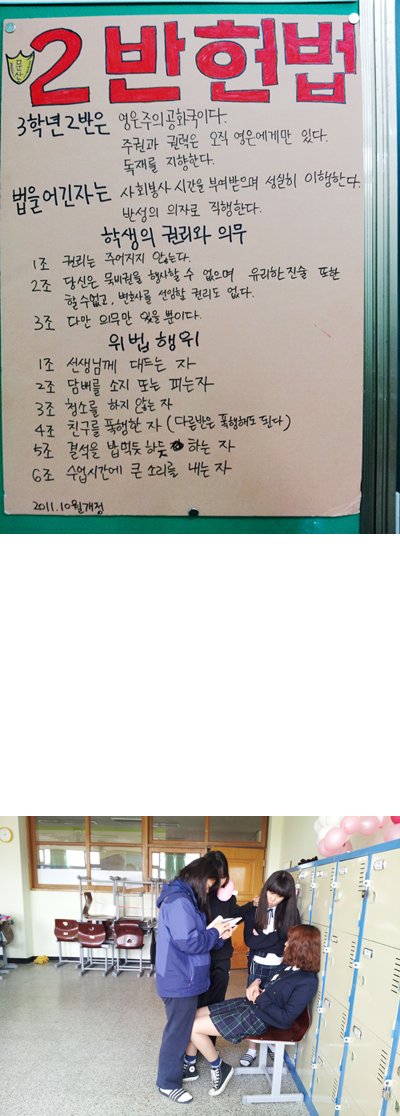 문산
2반헌법
3학년 2반은 영은주의공화국이다.
주권과 권력은 오직 영은에게만 있다.
독재를 지향한다.
법을어긴자는 사회봉사 시간을 부여받으며 성실히 이행한다.
반성의 의자로 직행한다.
학생의 권리와 의무
1조 권리는 주어지지 않는다.
2조 당신은 묵비권을 행사할 수 없으며 유리한진술 또한
할수없고, 변호사를 선임할 권리도 없다.
3조 다만 의무만 있을 뿐이다.
위법행위
1조 선생님께 대드는 자
2조 담배를 소지 또는 피는자
3조 청소를 하지 않는 자
4조 친구를 폭행한 자 (다른반은 폭행해도 된다)
5조 결석을 밥먹듯 하듯 하는 자
6조 수업시간에 큰 소리를 내는 자
2011.10월개정